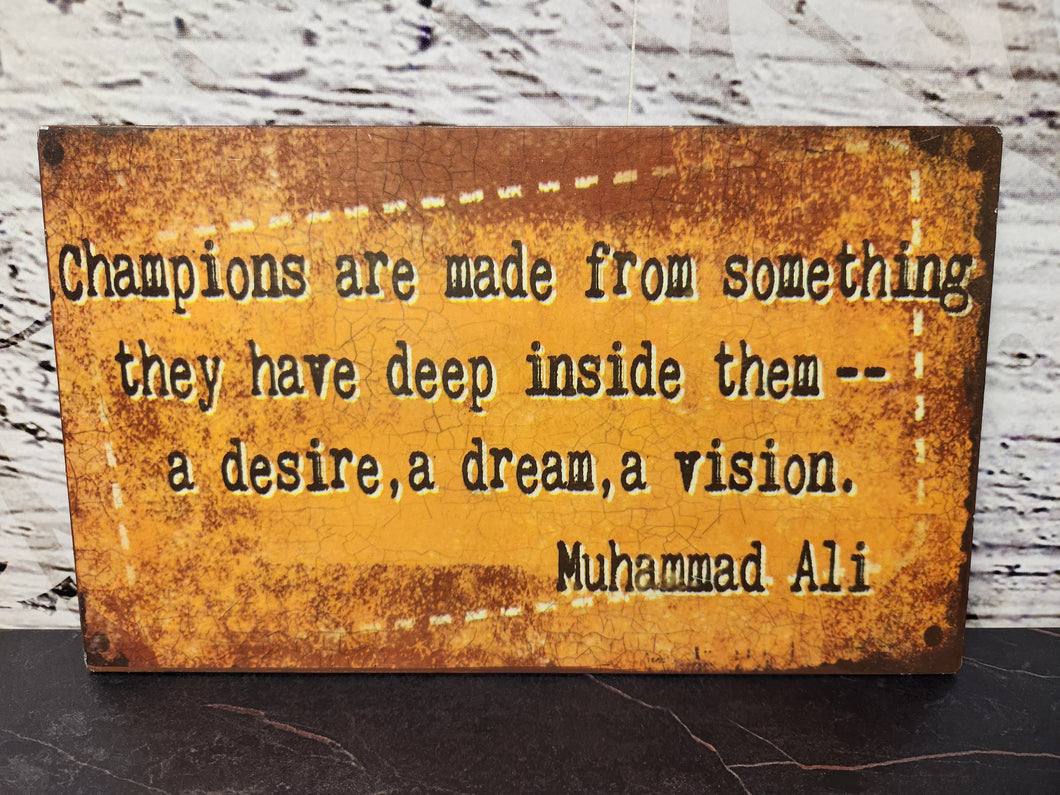 Champions are made from something
they have deep inside them--
a desire,a dream,a vision.
Muhammad Ali